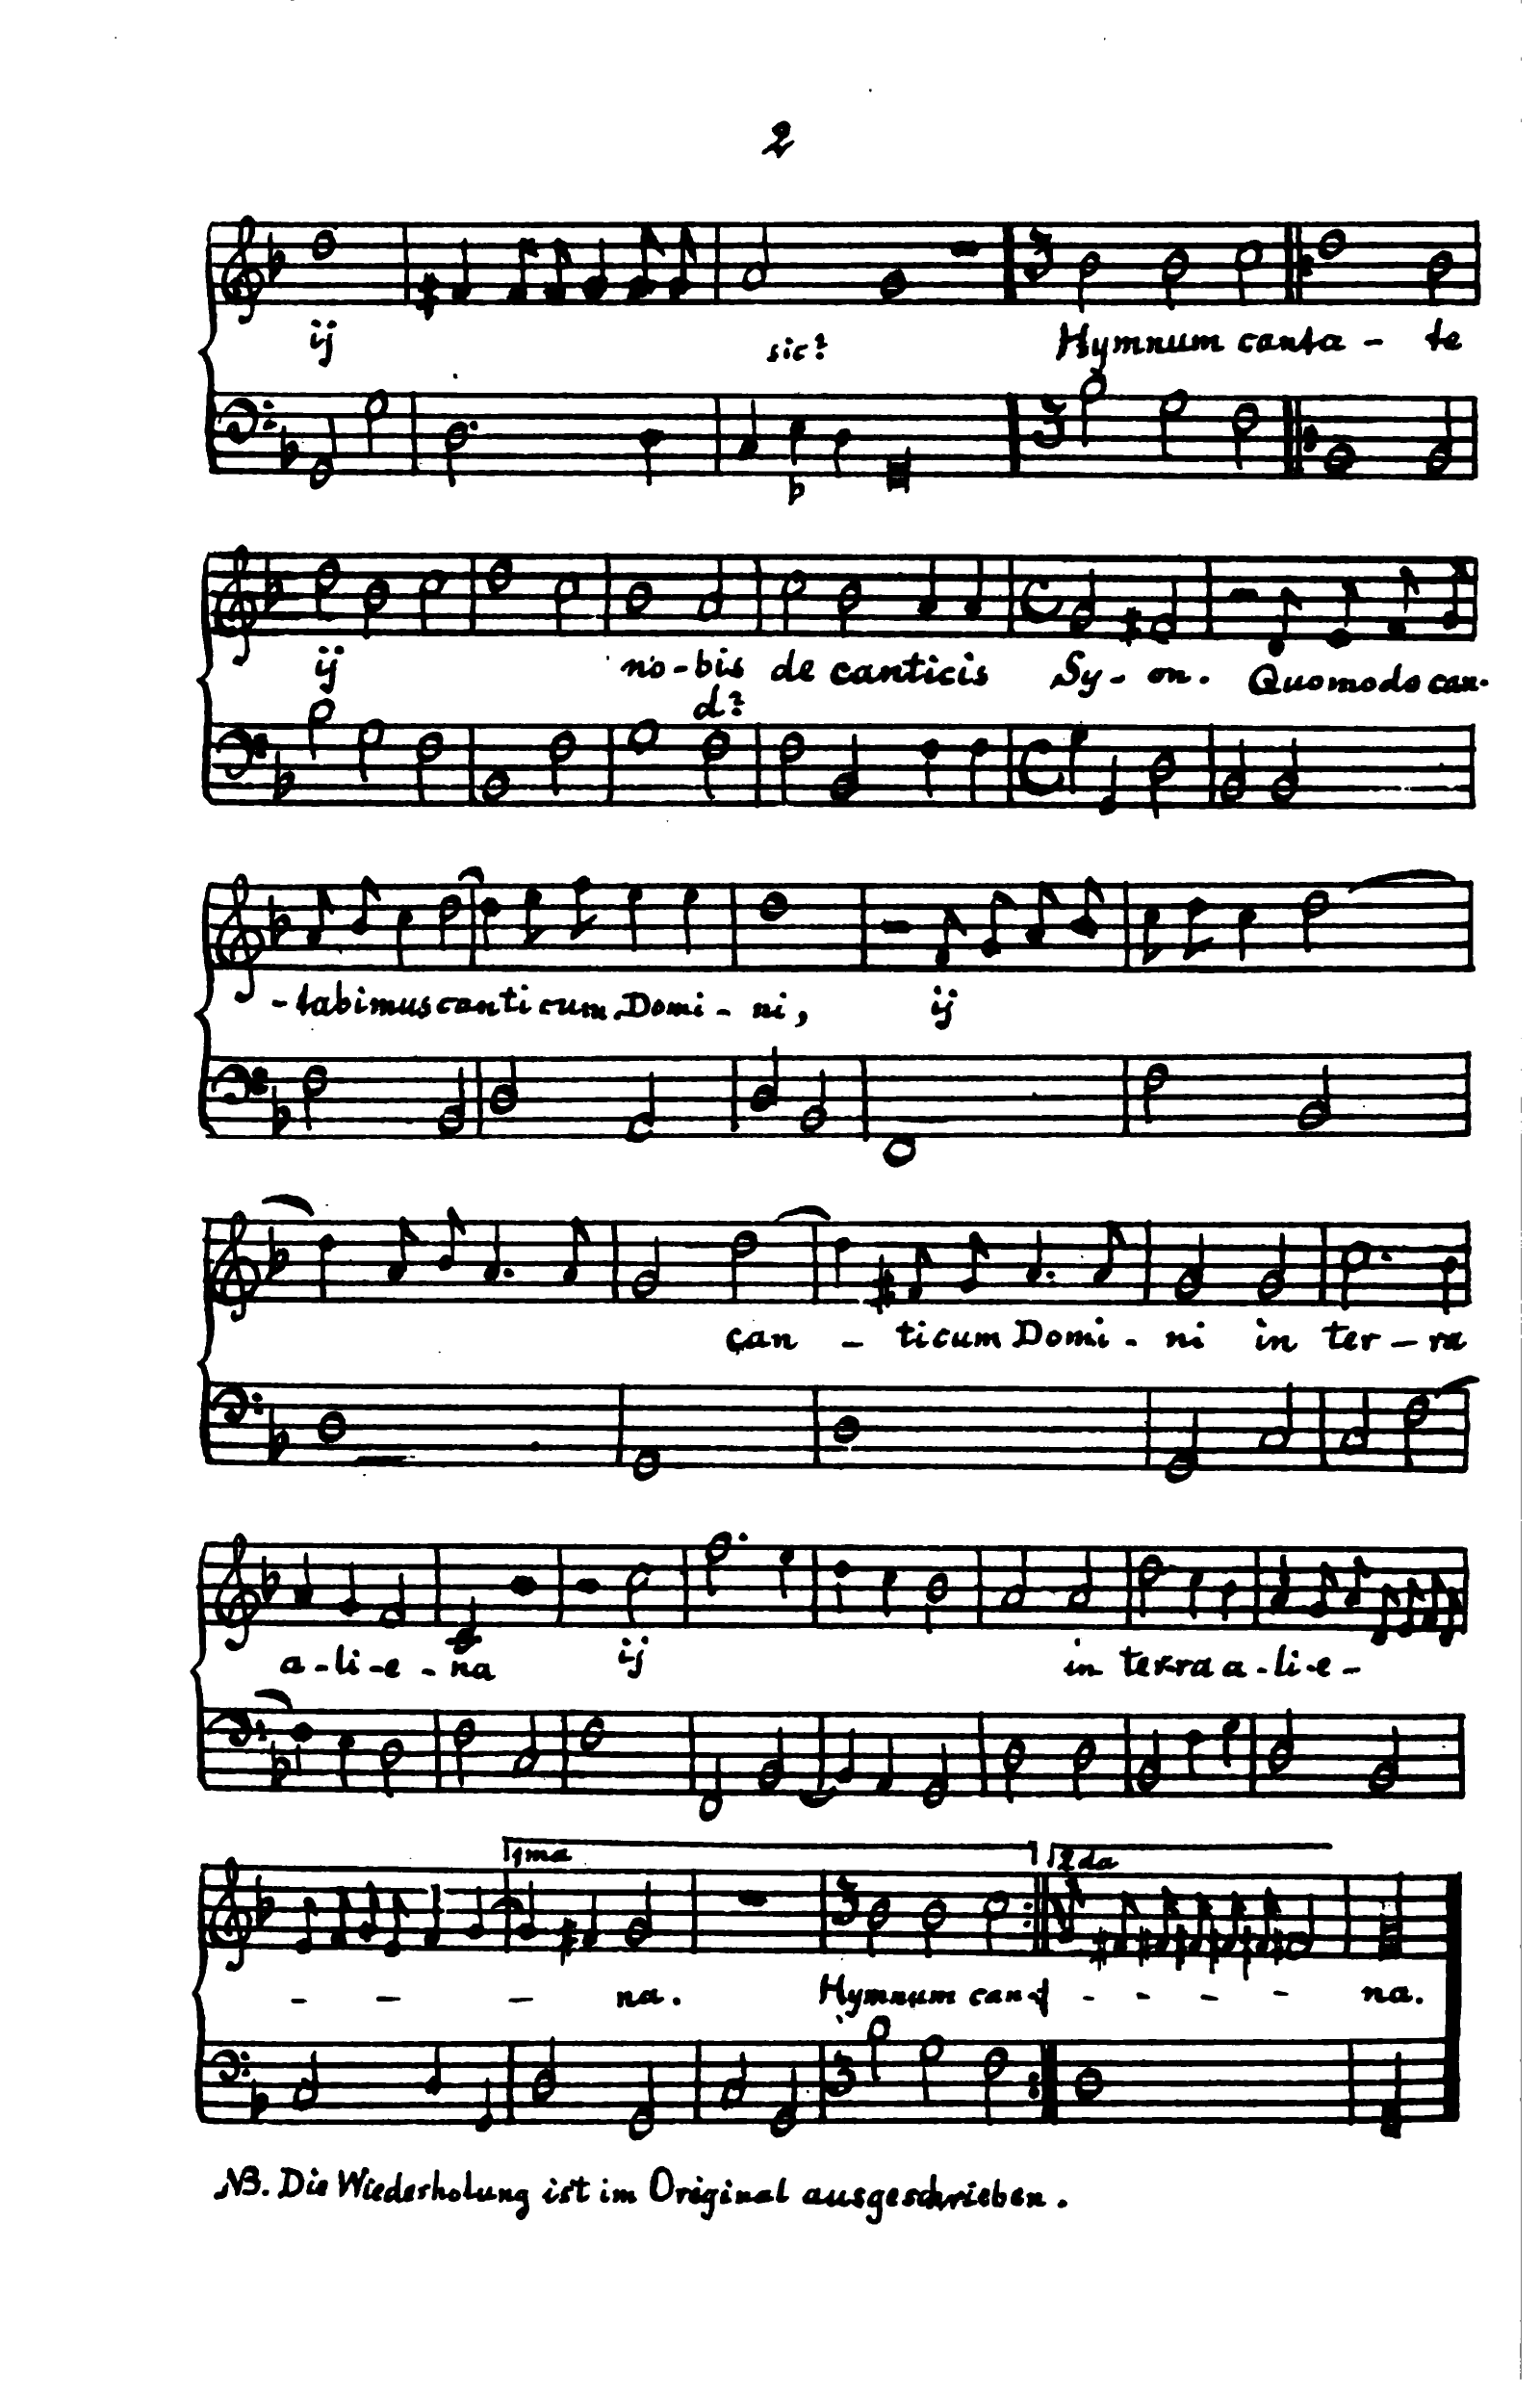 2
ij
sic?
Hymnum canta - te
ij no - bis de canticis Sy - on. Quomodo can-
d?
- tabimus canticum Domi - ni, ij
can - ticum Domi - ni in ter - ra
a - li - e - na ij in terra a - li - e -
1ma 2da
- - - na. Hymnum can - - - - - na.
NB. Die Wiederholung ist im Original ausgeschrieben.